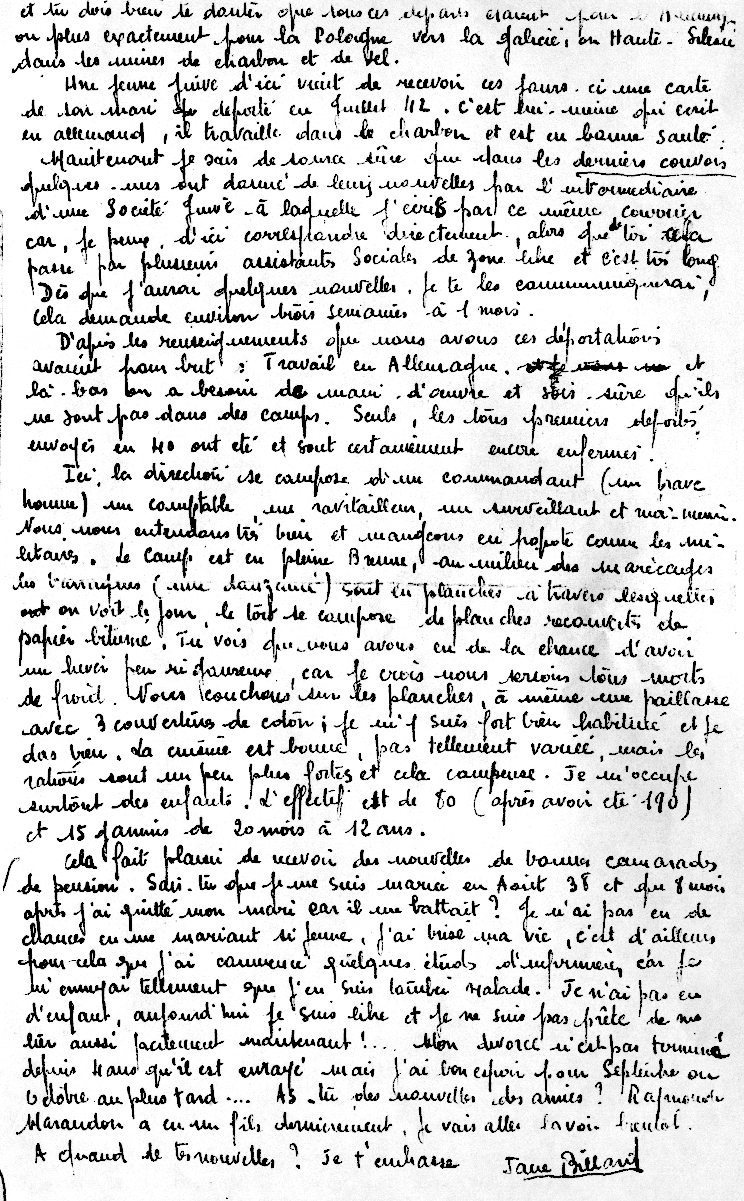 et tu dois bien te douter que tous ces departs étaient pour
ou plus exactement pour la Pologne vers la galicie, en Haute-Silésie
dans les mines de charbon et de sel.
Une jeune juive d'ici vient de recevoir ces jours-ci une carte
de son mari deporté en Juillet 42. C'est lui-même qui ecrit
en allemand, il travaille dans le charbon et est en bonne santé.
Maintenant je sais de source sûre que dans les derniers convois
quelques-uns ont donné de leurs nouvelles par l'intermediaire
d'une Société Juive à laquelle j'ecris par ce même courrier
car, je peux, d'ici correspondre directement, alors que de toi cela
passe par plusieurs assistantes Sociales de zone libre et c'est très long
Dès que j'aurai quelques nouvelles, je te les communiquerai,
cela demande environ trois semaines à 1 mois.
D'après les renseignements que nous avons ces déportations
avaient pour but : Travail en Allemagne. et
là-bas on a besoin de main-d'œuvre et sois sûre qu'ils
ne sont pas dans des camps. Seuls, les tous premiers deportés
envoyés en 40 ont été et sont certainement encore enfermés.
Ici, la direction se compose d'un commandant (un brave
homme) un comptable, un ravitailleur, un surveillant et moi-même.
Nous nous entendons très bien et mangeons en popote comme les mi-
litaires. Le Camp est en pleine Brenne, au milieu des marécages
les baraques (une douzaine) sont en planches à travers lesquelles
on voit le jour, le toit se compose de planches recouvertes de
papier bitumé. Tu vois que nous avons eu de la chance d'avoir
un hiver peu rigoureux, car je crois nous serions tous morts
de froid. Nous couchons sur les planches, à même une paillasse
avec 3 couvertures de coton ; je m'y suis fort bien habitué et je
dors bien. La cuisine est bonne, pas tellement variée, mais les
rations sont un peu plus fortes et cela compense. Je m'occupe
surtout des enfants. L'effectif est de 80 (après avoir été 190)
et 15 gamins de 20 mois à 12 ans.
Cela fait plaisir de recevoir des nouvelles de bonnes camarades
de pension. Sais-tu que je me suis mariée en Août 38 et que 8 mois
après j'ai quitté mon mari car il me battait ? Je n'ai pas eu de
chance en me mariant si jeune, j'ai brisé ma vie, c'est d'ailleurs
pour cela que j'ai commencé quelques études d'infirmière, car je
m'ennuyai tellement que j'en suis tombée malade. Je n'ai pas eu
d'enfant, aujourd'hui je suis libre et je ne suis pas prête de me
lier aussi facilement maintenant !... Mon divorce n'est pas terminé
depuis 4 ans qu'il est enrayé mais j'ai bon espoir pour Septembre ou
Octobre au plus tard.... As-tu des nouvelles des amies ? Raymonde
Marandon a eu un fils dernièrement, je vais aller la voir bientôt.
A quand de tes nouvelles ? Je t'embrasse Jane Billard